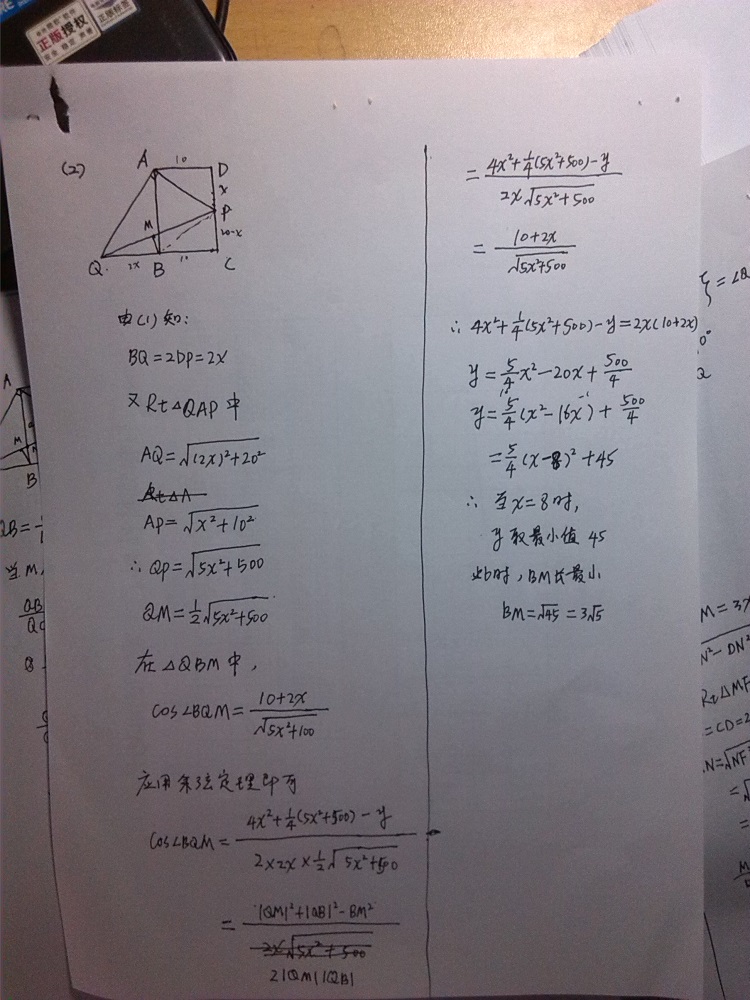 正版授权
(2)
A 10 D
x
P
M
10-x
Q 2x B 10 C
由(1)知:
BQ=2DP=2x
又Rt△QAP中
AQ=√((2x)²+20²)
Rt△A
AP=√(x²+10²)
∴QP=√(5x²+500)
QM=½√(5x²+500)
在△QBM中,
cos∠BQM=(10+2x)/√(5x²+100)
应用余弦定理即可
cos∠BQM=(4x²+¼(5x²+500)-y)/(2×2x×½√(5x²+500))
=(|QM|²+|QB|²-BM²)/(2|QM||QB|)
2x√(5x²+500)
=(4x²+¼(5x²+500)-y)/(2x√(5x²+500))
=(10+2x)/√(5x²+500)
∴4x²+¼(5x²+500)-y=2x(10+2x)
y=5/4x²-20x+500/4
y=5/4(x²-16x)+500/4
=5/4(x-8)²+45
∴当x=8时,
y取最小值45
此时,BM长最小
BM=√45=3√5
A
M
B
QB=
当M,
QB
=∠Q
M=3x
N²-DN²
Rt△MF
=CD=2